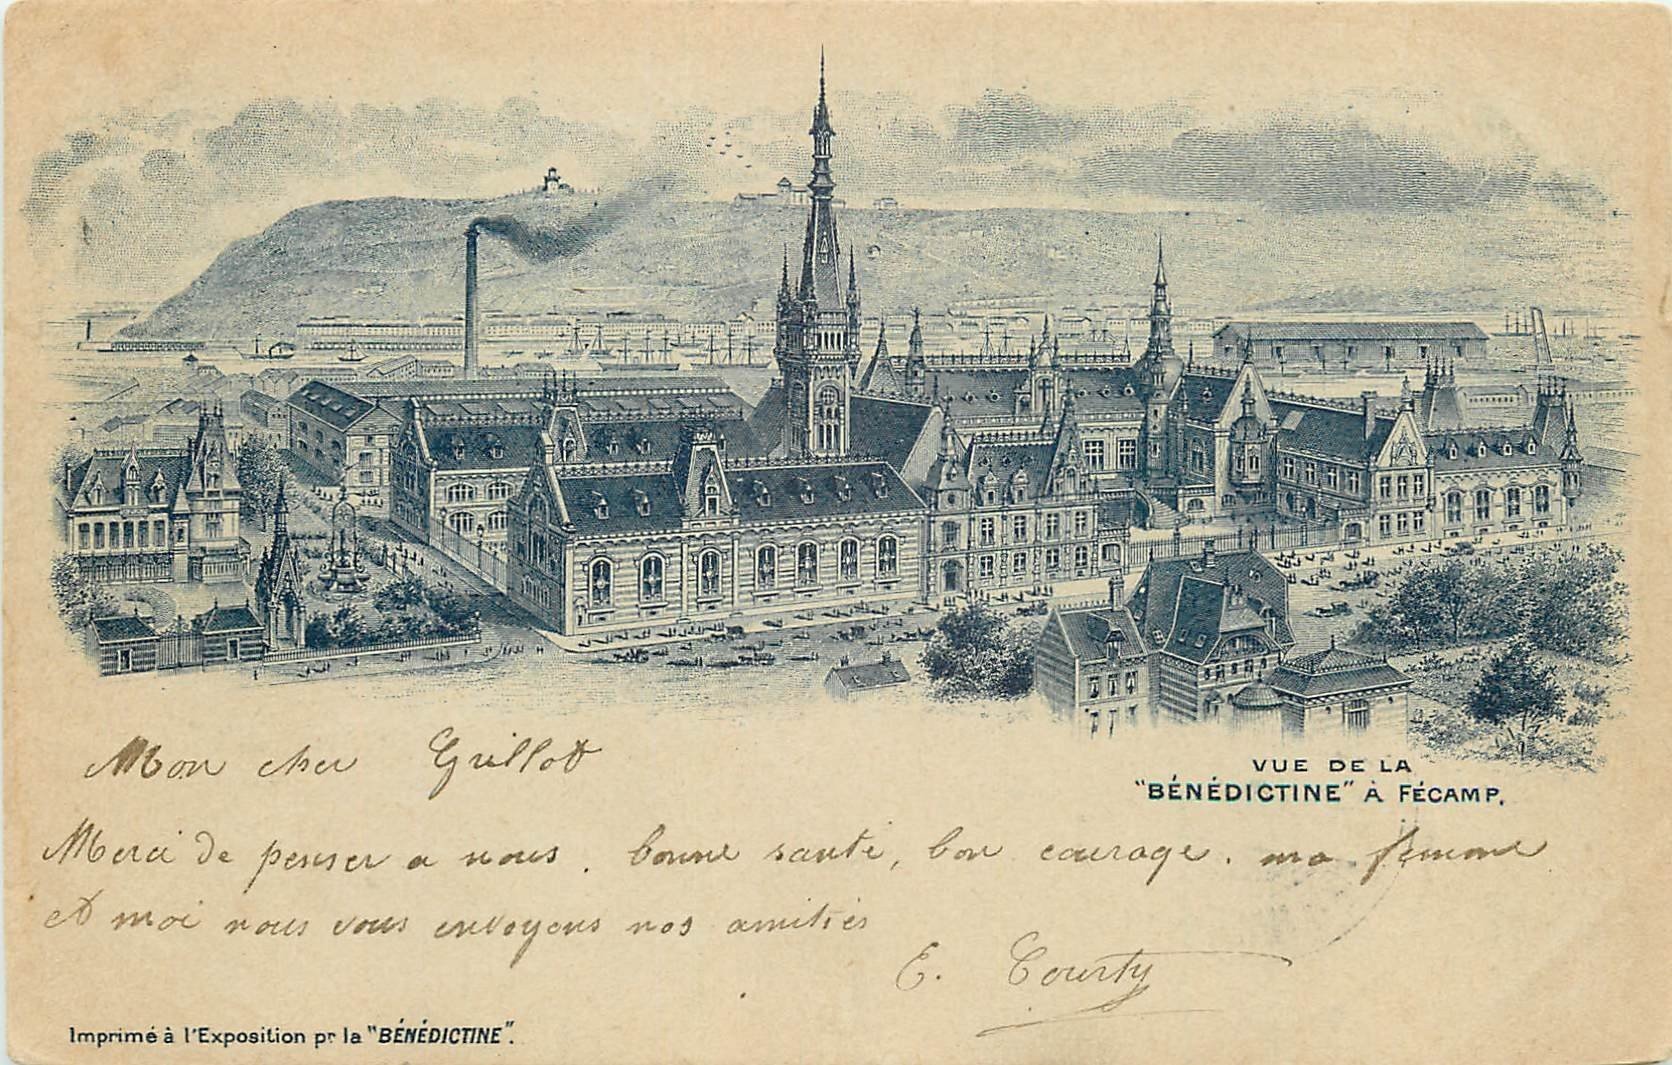 VUE DE LA
"BÉNÉDICTINE" À FÉCAMP.
Mon cher Grillot
Merci de penser a nous. bonne santé, bon courage. ma femme
et moi nous vous envoyons nos amitiés
E. Courty
Imprimé à l'Exposition pr la "BÉNÉDICTINE".